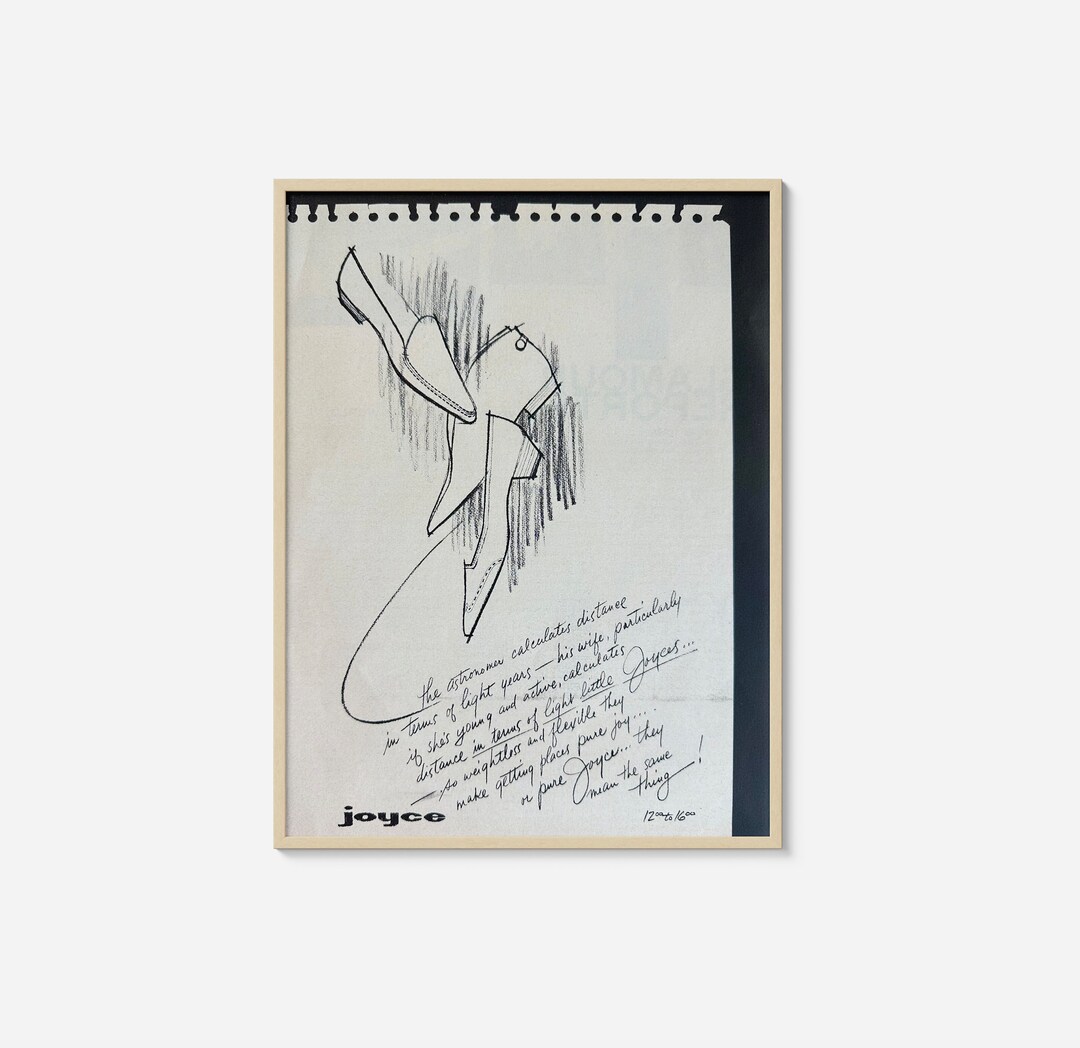 the astronomer calculates distance
in terms of light years — his wife, particularly
if she's young and active, calculates
distance in terms of light little Joyces...
— so weightless and flexible they
make getting places pure joy....
or pure Joyce... they
mean the same
thing — !
joyce
12⁰⁰ to 16⁰⁰